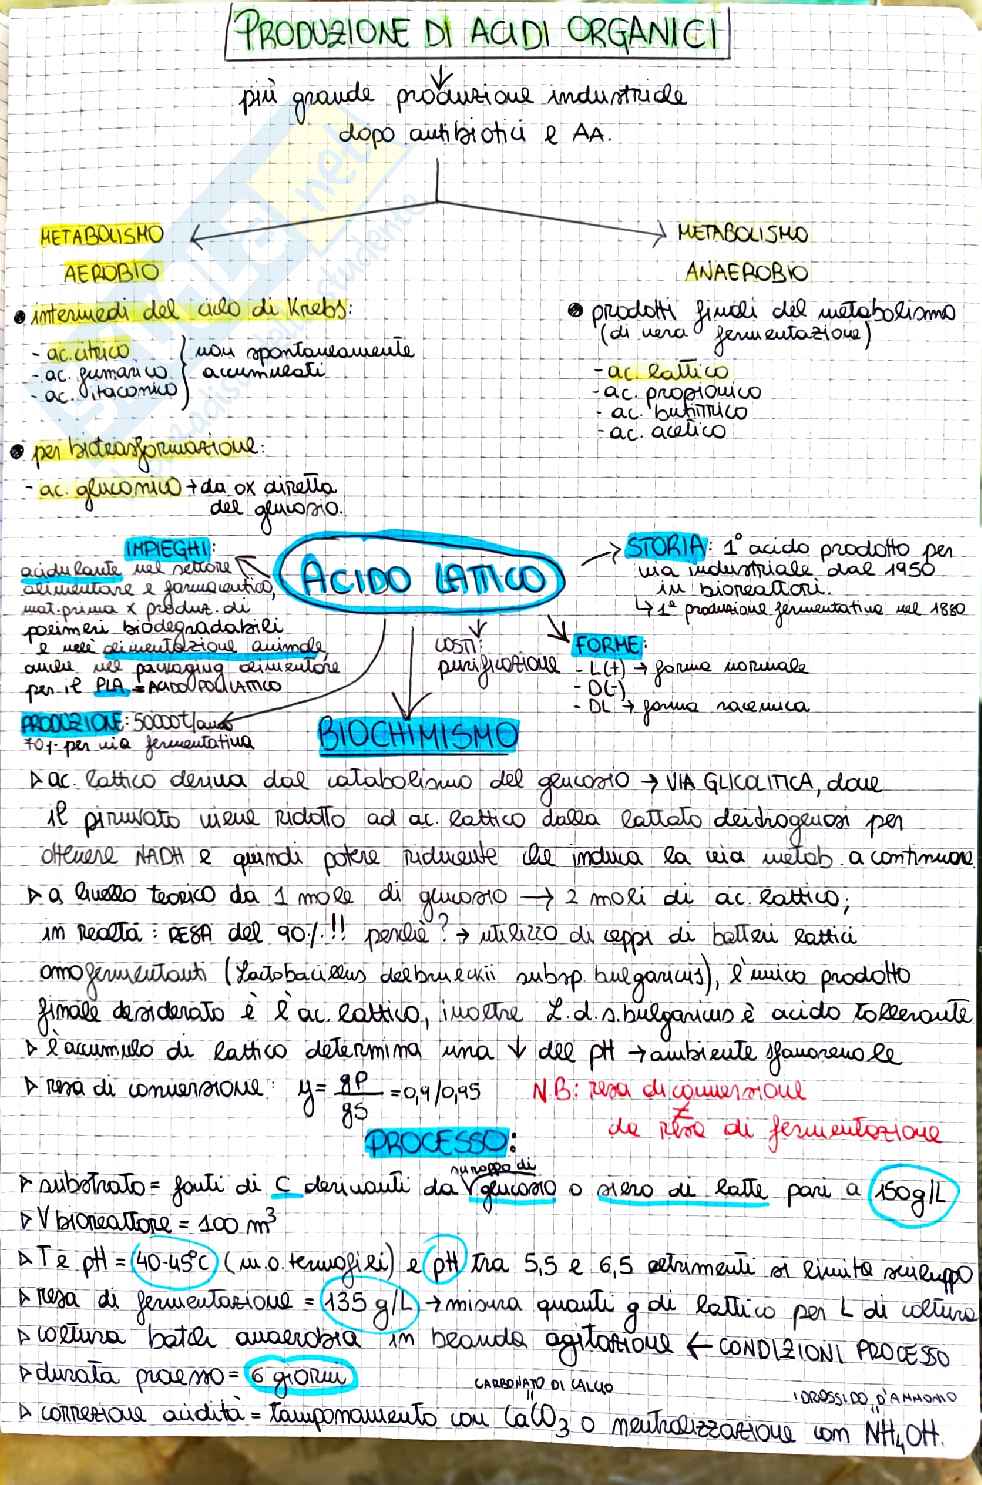 PRODUZIONE DI ACIDI ORGANICI
più grande produzione industriale
dopo antibiotici e AA.
METABOLISMO
AEROBIO
• intermedi del ciclo di Krebs:
- ac. citrico
- ac. fumarico
- ac. itaconico
non spontaneamente
accumulati
• per biotrasformazione:
- ac. gluconico → da ox diretta
del glucosio.
METABOLISMO
ANAEROBIO
• prodotti finali del metabolismo
(di vera fermentazione)
- ac. lattico
- ac. propionico
- ac. butirrico
- ac. acetico
ACIDO LATTICO
IMPIEGHI:
acidulante nel settore
alimentare e farmaceutico,
mat. prima x produz. di
polimeri biodegradabili
e nell'alimentazione animale,
anche nel packaging alimentare
per il PLA = ACIDO POLILATTICO
STORIA: 1° acido prodotto per
via industriale dal 1950
in bioreattori.
↳ 1° produzione fermentativa nel 1880
COSTI:
purificazione
FORME:
- L(+) → forma normale
- D(-)
- DL → forma racemica
PRODUZIONE: 50000t/anno
70% per via fermentativa
BIOCHIMISMO
▹ ac. lattico deriva dal catabolismo del glucosio → VIA GLICOLITICA, dove
il piruvato viene ridotto ad ac. lattico dalla lattato deidrogenasi per
ottenere NADH e quindi potere riducente che induca la via metab. a continuare
▹ a livello teorico da 1 mole di glucosio → 2 moli di ac. lattico;
in realtà: RESA del 90%!! perché? → utilizzo di ceppi di batteri lattici
omofermentanti (Lactobacillus delbrueckii subsp. bulgaricus), l'unico prodotto
finale desiderato è l'ac. lattico, inoltre L.d.s. bulgaricus è acido tollerante
▹ l'accumulo di lattico determina una ↓ del pH → ambiente sfavorevole
▹ resa di conversione: y = gP/gS = 0,9/0,95
N.B: resa di conversione
≠
da resa di fermentazione
PROCESSO:
▹ substrato = fonti di C derivanti da sciroppo di glucosio o siero di latte pari a 150g/L
▹ V bioreattore = 100 m³
▹ T e pH = 40-45°C (m.o. termofili) e pH tra 5,5 e 6,5 altrimenti si limita sviluppo
▹ resa di fermentazione = 135 g/L → misura quanti g di lattico per L di coltura
▹ coltura batch anaerobia in blanda agitazione ← CONDIZIONI PROCESSO
▹ durata processo = 6 giorni
CARBONATO DI CALCIO
IDROSSIDO D'AMMONIO
▹ correzione acidità = tamponamento con CaCO₃ o neutralizzazione con NH₄OH.